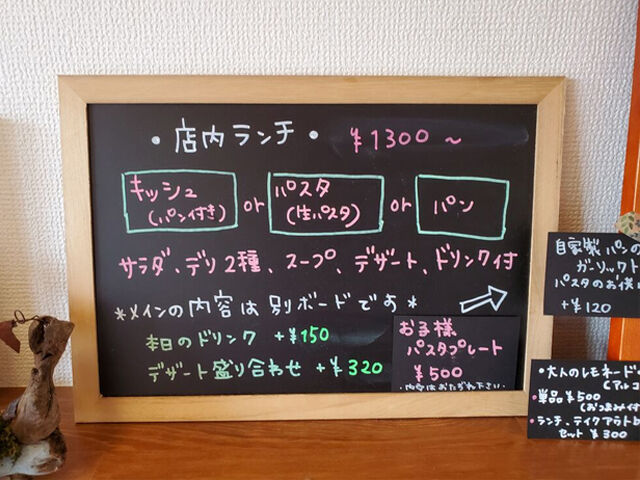 ・店内ランチ・ ¥1300〜
キッシュ
(パン付き)
or
パスタ
(生パスタ)
or
パン
サラダ、デリ2種、スープ、デザート、ドリンク付
*メインの内容は別ボードです*
本日のドリンク +¥150
デザート盛り合わせ +¥320
お子様
パスタプレート
¥500
・内容はおたずね下さい・
自家製パンの
ガーリックト
パスタのお供に
+¥120
・大人のレモネード
(アルコ
・単品¥500
(おつまみ付
・ランチ、テイクアウトは
セット ¥300